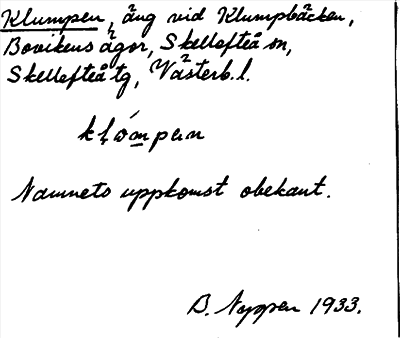 Klumpen, äng vid Klumpbäcken,
Bovikens ägor, Skellefteå sn,
Skellefteå tg, Västerb. l.
Namnets uppkomst obekant.
B. Nyppen 1933.